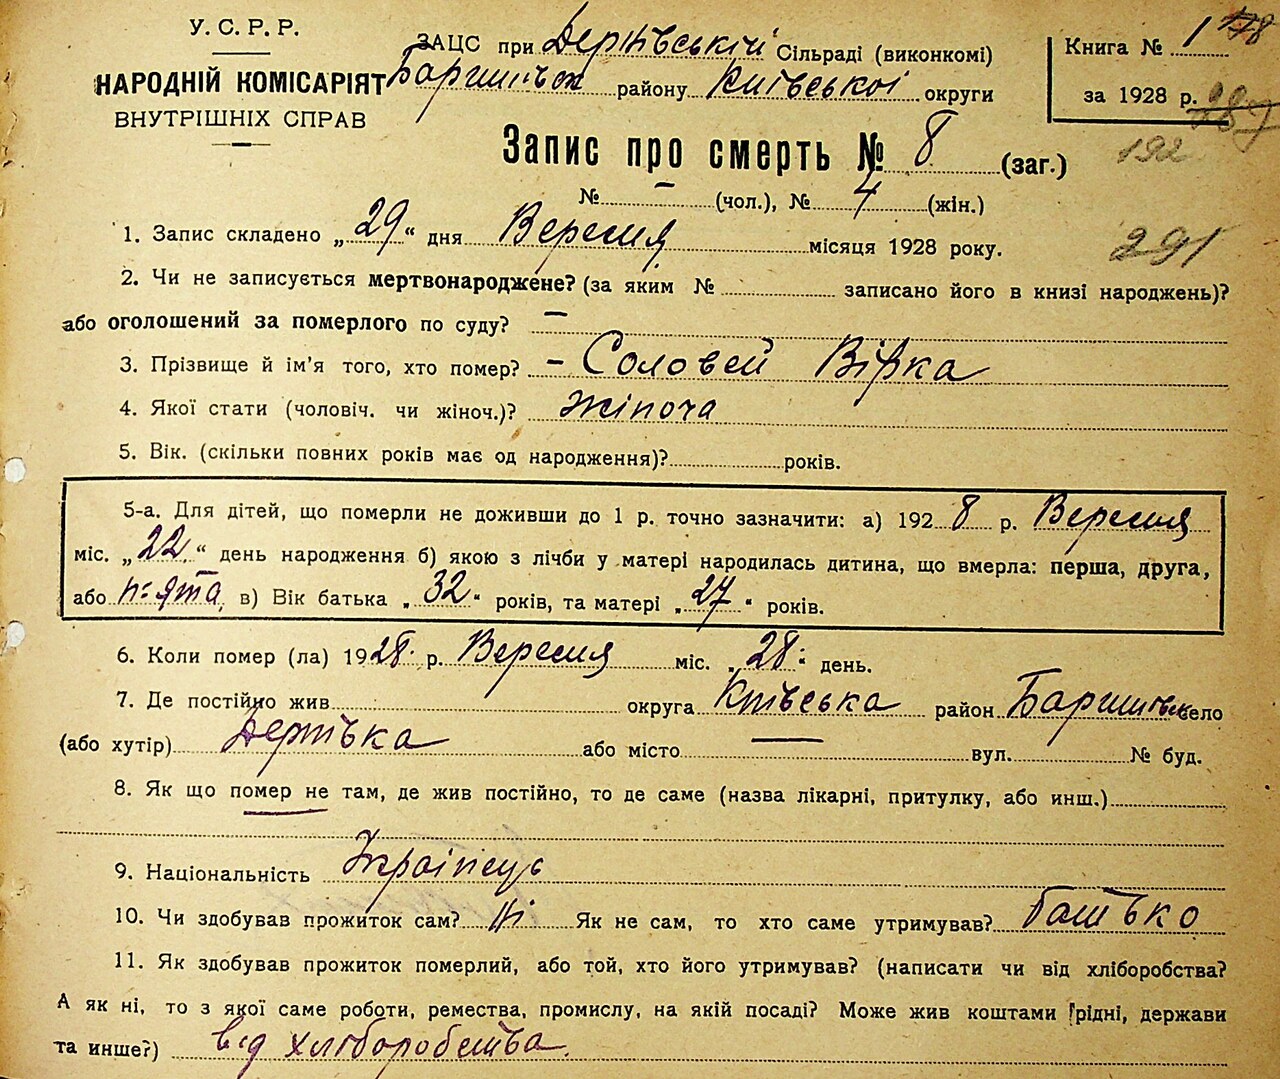 У. С. Р. Р.
НАРОДНІЙ КОМІСАРІЯТ
ВНУТРІШНІХ СПРАВ
ЗАЦС при Дернівській Сільраді (виконкомі)
Баришівськ району Київської округи
Книга № 1
за 1928 р.
192
291
Запис про смерть № 8 (заг.)
№ – (чол.), № 4 (жін.)
1. Запис складено „29“ дня Вересня місяця 1928 року.
2. Чи не записується мертвонароджене? (за яким № записано його в книзі народжень)?
або оголошений за померлого по суду? –
3. Прізвище й ім’я того, хто помер? – Соловей Вірка
4. Якої стати (чоловіч. чи жіноч.)? жіноча
5. Вік. (скільки повних років має од народження)? років.
5-а. Для дітей, що померли не доживши до 1 р. точно зазначити: а) 1928 р. Вересня
міс. „22“ день народження б) якою з лічби у матері народилась дитина, що вмерла: перша, друга,
або п'ята в) Вік батька „32“ років, та матері „27“ років.
6. Коли помер (ла) 1928 р. Вересня міс. „28“ день.
7. Де постійно жив округа Київська район Баришівськ село
(або хутір) Дернівка або місто — вул. № буд.
8. Як що помер не там, де жив постійно, то де саме (назва лікарні, притулку, або инш.)
9. Національність Українець
10. Чи здобував прожиток сам? Ні Як не сам, то хто саме утримував? батько
11. Як здобував прожиток померлий, або той, хто його утримував? (написати чи від хліборобства?
А як ні, то з якої саме роботи, ремества, промислу, на якій посаді? Може жив коштами рідні, держави
та инше?) від хліборобства.